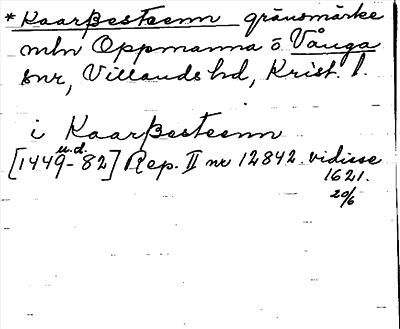 * Kaarßesteenn gränsmärke
mln Oppmanna o Vånga
snr, Villands hd, Krist. l.
i Kaarßesteenn
u.d.
[1449-82] Rep. II nr 12842. vidisse
1621.
20/6